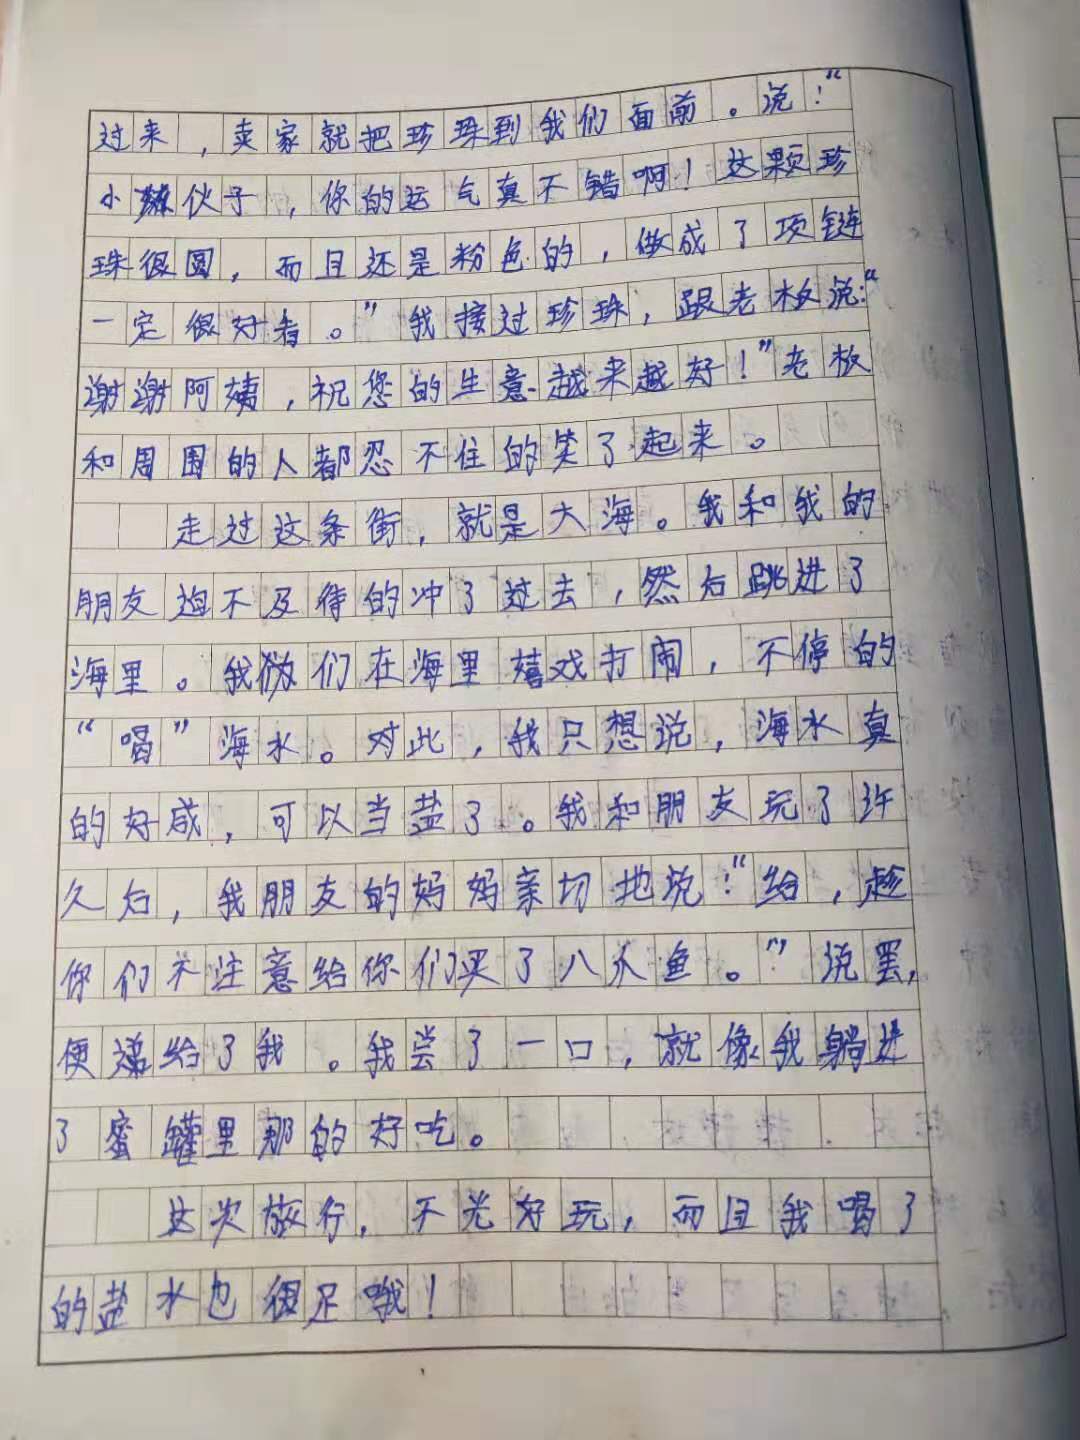 过来，卖家就把珍珠到我们面前。说：“
小伙子，你的运气真不错啊！这颗珍
珠很圆，而且还是粉色的，做成了项链
一定很好看。”我接过珍珠，跟老板说：“
谢谢阿姨，祝您的生意越来越好！”老板
和周围的人都忍不住的笑了起来。
走过这条街，就是大海。我和我的
朋友迫不及待的冲了过去，然后跳进了
海里。我们在海里嬉戏打闹，不停的
“喝”海水。对此，我只想说，海水真
的好咸，可以当盐了。我和朋友玩了许
久后，我朋友的妈妈亲切地说：“给，趁
你们不注意给你们买了八爪鱼。”说罢，
便递给了我。我尝了一口，就像我躺进
了蜜罐里那的好吃。
这次旅行，不光好玩，而且我喝了
的盐水也很足哦！